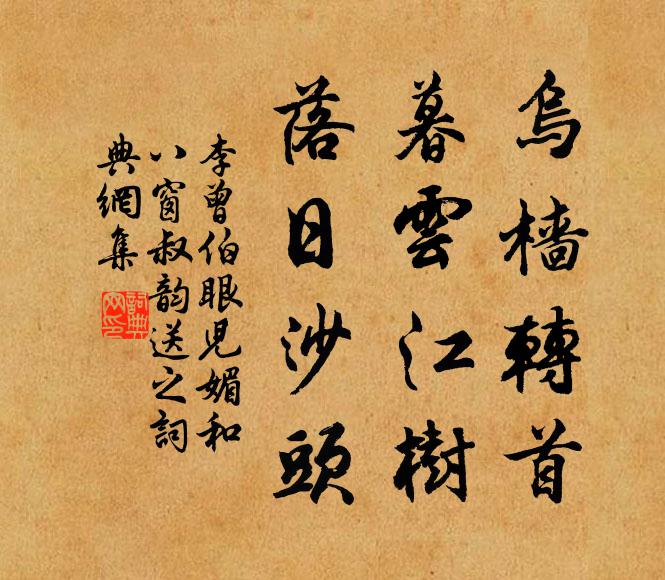 烏檣轉首
暮雲江樹
落日沙頭
李曾伯眼兒媚和
八窗叔韵送之詞
典網集
詞典網印